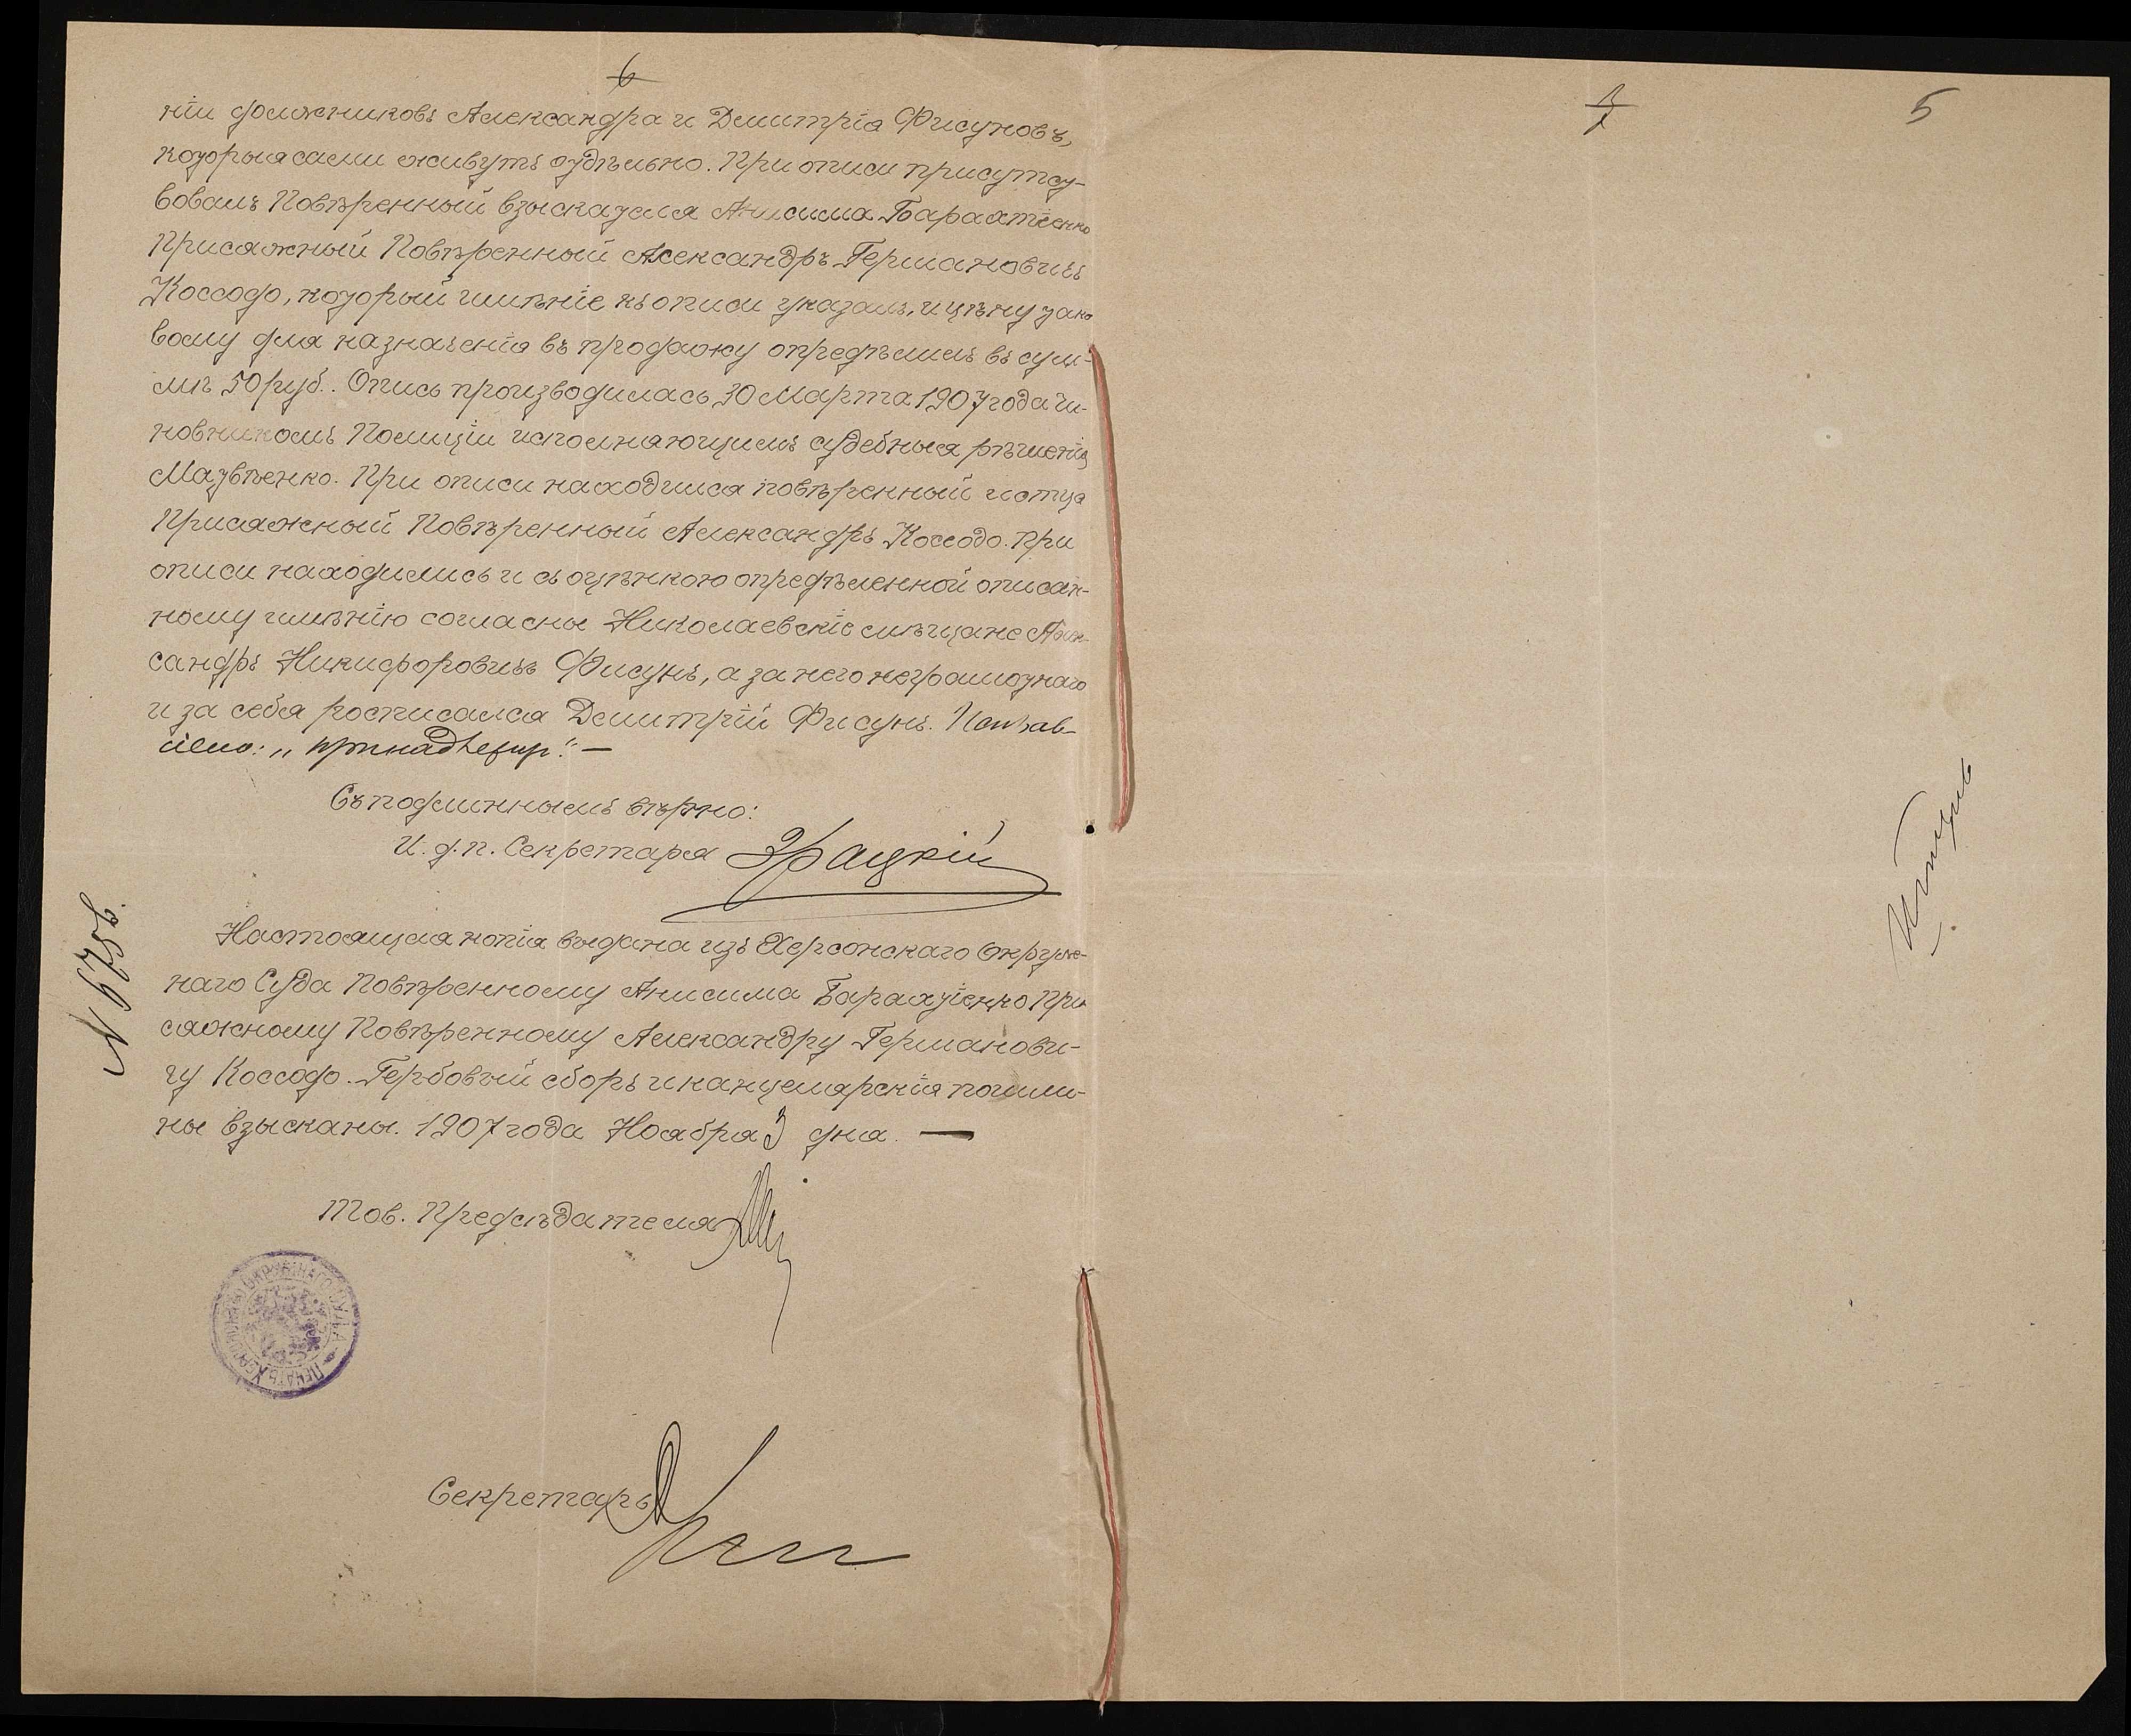 6
ніи должниковъ Александра и Дмитрія Фисуновъ,
которыя сами живутъ отдѣльно. При описи присутст-
вовалъ Повѣренный взыскателя Анисима Барахтіенко
Присяжный Повѣренный Александръ Германовичъ
Коссодо, который имѣніе къ описи указалъ, и цѣну тако
вому для назначенія въ продажу опредѣлилъ въ сум-
мѣ 50 руб.. Опись производилась 30 Марта 1907 года Чи-
новникомъ Полиціи исполняющимъ судебныя рѣшенія
Матвѣенко. При описи находился повѣренный истца
Присяжный Повѣренный Александръ Коссодо. При
описи находились и съ оцѣнкою опредѣленной описан-
ному имѣнію согласны Николаевскіе мѣщане Алек-
сандръ Никифоровичъ Фисунъ, а за него неграмотнаго
и за себя росписался Дмитрій Фисунъ.
Съ подлиннымъ вѣрно:
И. д. п. Секретаря
№ 678ъ.
Настоящая копія выдана изъ Херсонскаго Окруж-
наго Суда Повѣренному Анисима Барахтіенко При
сяжному Повѣренному Александру Германови-
чу Коссодо. Гербовый сборъ и канцелярскія пошли-
ны взысканы. 1907 года Ноября 3 дня. —
Тов. Предсѣдателя
ПЕЧАТЬ ХЕРСОНСКАГО ОКРУЖНАГО СУДА
Секретарь
7
5